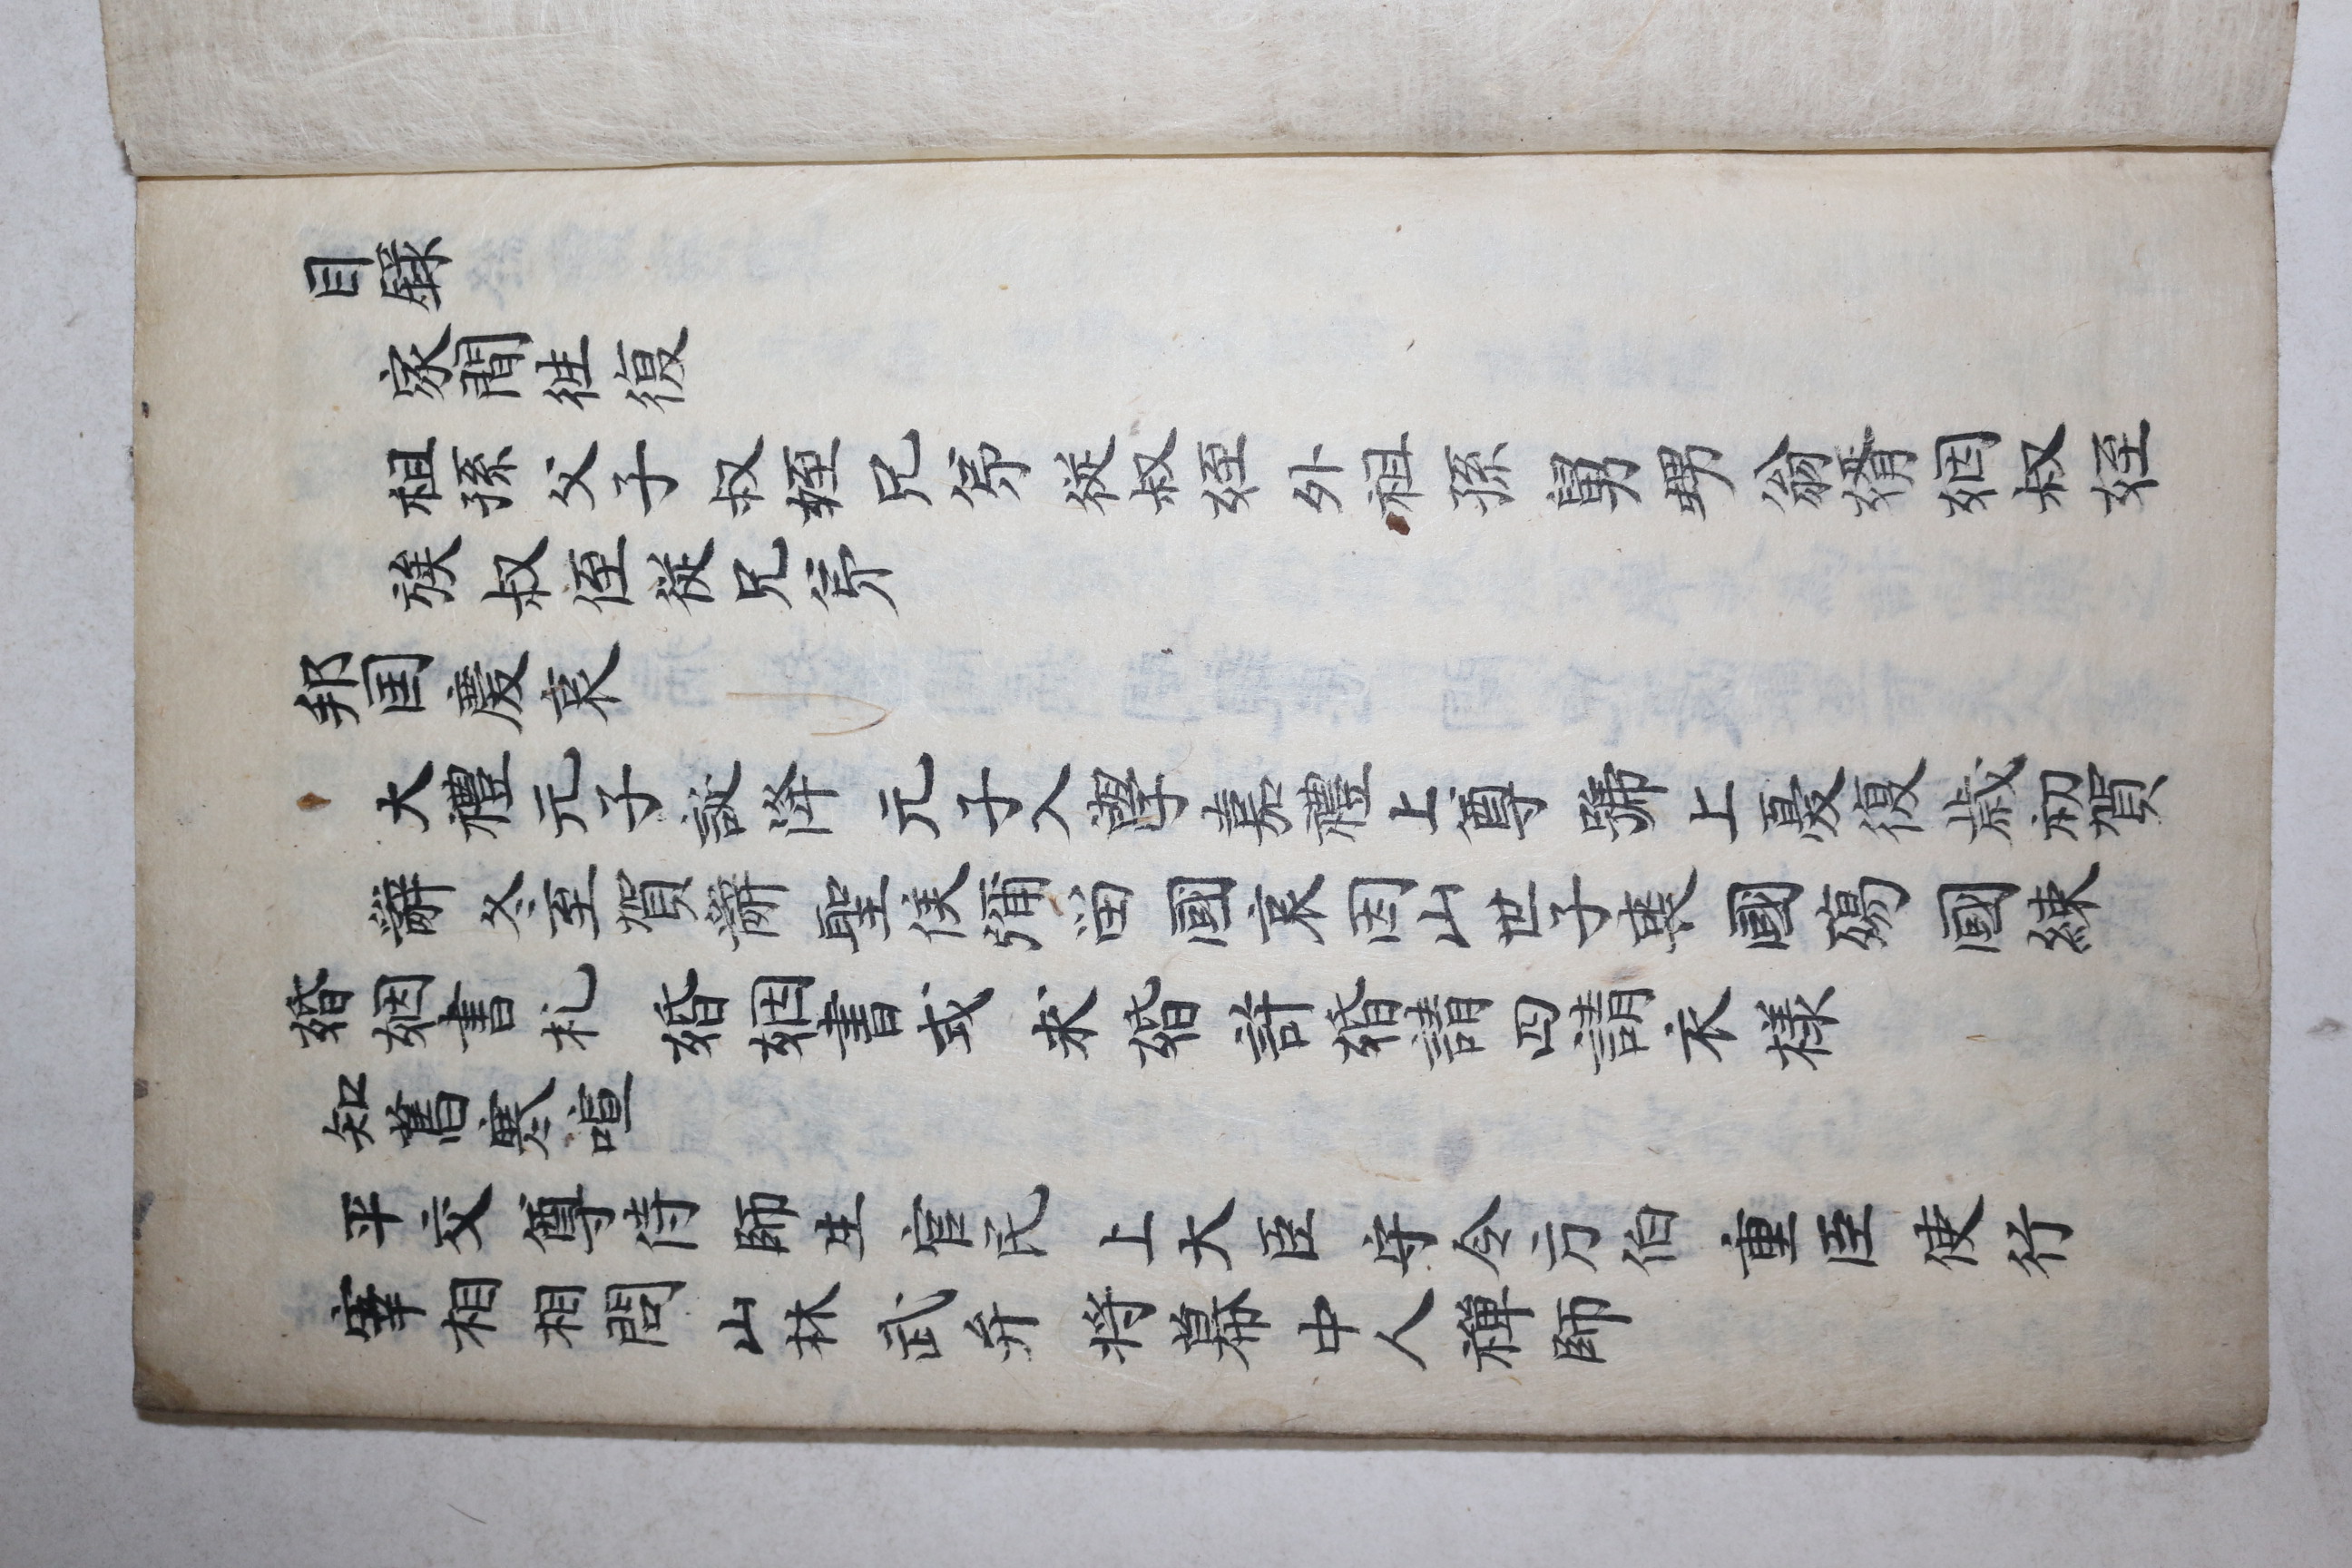 目錄
家間徃復
祖孫父子 叔姪 兄弟 從叔姪 外祖孫 舅甥 翁婿 姻叔姪
族叔侄 從兄弟
邦囯慶哀
大禮元子誕降 元子入學嘉禮上尊號上憂復歲初賀
辭 冬至賀辭 聖候彌留 國哀因山世子喪 國殤 國練
婚姻書札 婚姻書式 求婚 許婚請四請衣樣
知舊寒喧
平交尊侍 師生 官民 上大臣 守令方伯 重臣 使行
宰相相問 山林 武弁 将幕中人禪師